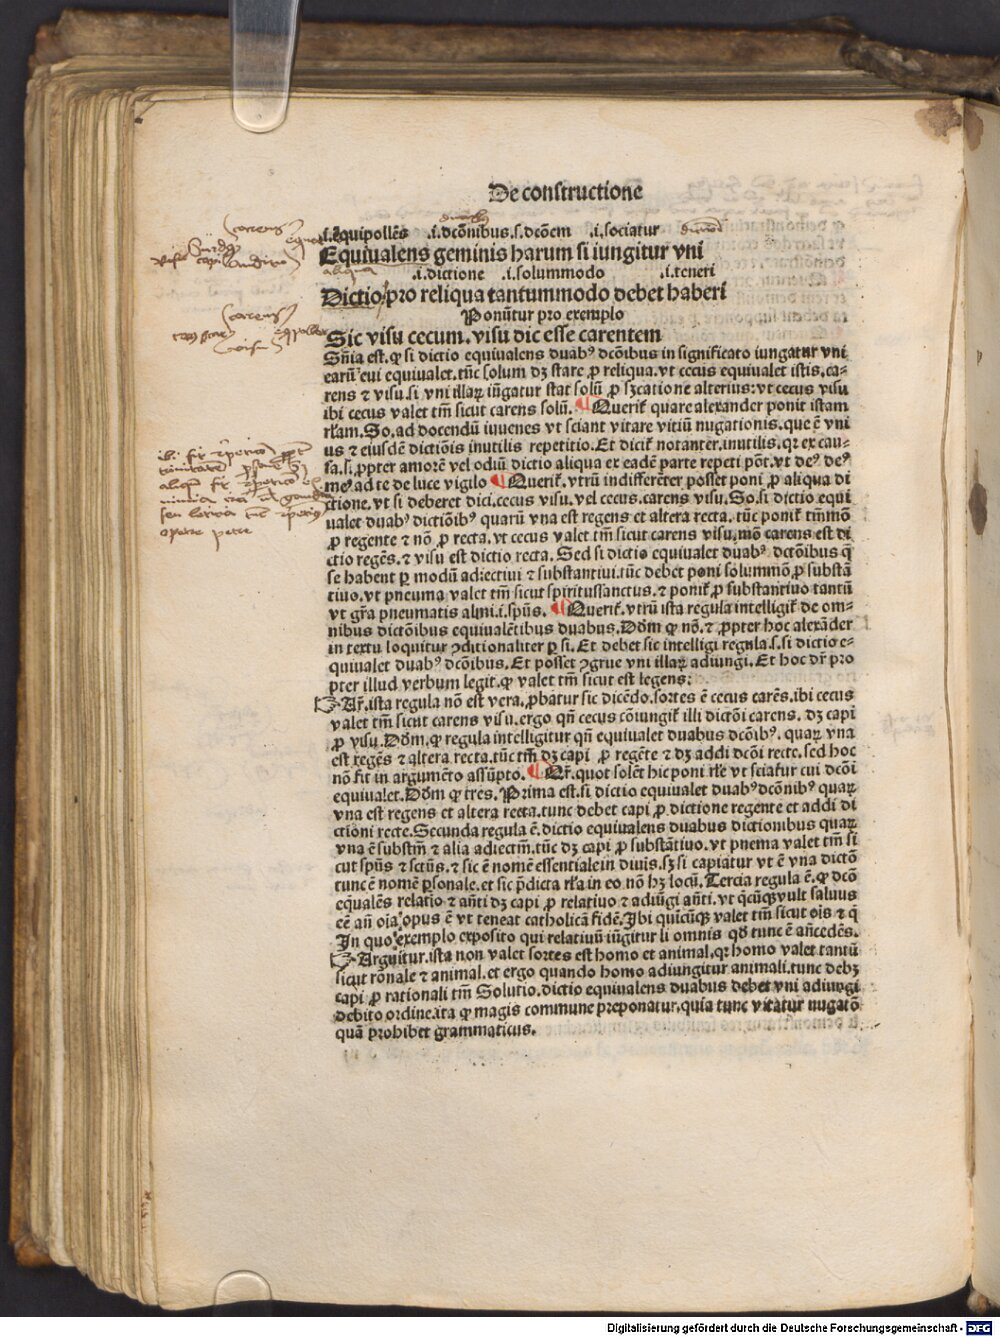 De constructione
.i.equipollẽs .i.dcõnibus.s.dcõem .i.sociatur
Equiualens geminis harum si iungitur vni
aliqua .i.dictione .i.solummodo .i.teneri
Dictio pro reliqua tantummodo debet haberi
Ponũtur pro exemplo
Sic visu cecum. visu dic esse carentem
Sñia est. ꝙ si dictio equiualens duabꝰ dcõibus in significato iungatur vni
earũ cui equiualet. tũc solum dꝫ stare ꝓ reliqua. vt cecus equiualet istis. ca-
rens ⁊ visu. si vni illaꝝ iũgatur stat solũ ꝓ sꝫcatione alterius: vt cecus visu
ibi cecus valet tm̃ sicut carens solũ. ¶ Querit᷑ quare alexander ponit istam
rl̃am. So. ad docendũ iuuenes vt sciant vitare vitiũ nugationis. que ẽ vni
us ⁊ eiusdẽ dictiõis inutilis repetitio. Et dicit᷑ notanter. inutilis. qꝛ ex cau-
sa. s. ꝓpter amorẽ vel odiũ dictio aliqua ex eadẽ parte repeti põt. vt deꝰ deꝰ
meꝰ ad te de luce vigilo ¶ Querit᷑. vtrũ indifferẽter posset poni ꝓ aliqua di
ctione. vt si deberet dici. cecus visu. vel cecus. carens visu. So. si dictio equi
ualet duabꝰ dictiõibꝰ quarũ vna est regens et altera recta. tũc ponit᷑ tm̃mõ
ꝓ regente ⁊ nõ ꝓ recta. vt cecus valet tm̃ sicut carens visu. mõ carens est di
ctio regẽs. ⁊ visu est dictio recta. Sed si dictio equiualet duabꝰ dictõibus q̃
se habent ꝑ modũ adiectiui ⁊ substantiui. tũc debet poni solummõ ꝓ substã
tiuo. vt pneuma valet tm̃ sicut spiritussanctus. ⁊ ponit᷑ ꝓ substantiuo tantũ
vt gr̃a pneumatis almi. i. spũs. ¶ Querit᷑. vtrũ ista regula intelligit᷑ de om-
nibus dictõibus equiualẽtibus duabus. Dõm ꝙ nõ. ⁊ ꝓpter hoc alexãder
in textu loquitur ꝯditionaliter ꝑ si. Et debet sic intelligi regula. s. si dictio e-
quiualet duabꝰ dcõibus. Et posset ꝯgrue vni illaꝝ adiungi. Et hoc dr̃ pro
pter illud verbum legit. ꝙ valet tm̃ sicut est legens:
☞ Ar̃. ista regula nõ est vera. ꝓbatur sic dicẽdo. sortes ẽ cecus carẽs. ibi cecus
valet tm̃ sicut carens visu. ergo qñ cecus cõiungit᷑ illi dictõi carens. dꝫ capi
ꝓ visu. Dõm. ꝙ regula intelligitur qñ equiualet duabus dcõibꝰ. quaꝝ vna
est regẽs ⁊ altera recta. tũc tm̃ dꝫ capi ꝓ regẽte ⁊ dꝫ addi dcõi recte. sed hoc
nõ fit in argumẽto assũpto. ¶ Qr̃. quot solẽt hic poni rl̃e vt sciatur cui dcõi
equiualet. Dõm ꝙ tres. Prima est. si dictio equiualet duabꝰ dcõnibꝰ quaꝝ
vna est regens et altera recta. tunc debet capi ꝓ dictione regente et addi di
ctioni recte. Secunda regula ẽ. dictio equiualens duabus dictionibus quaꝝ
vna ẽ substm̃ ⁊ alia adiectm̃. tũc dꝫ capi ꝓ substãtiuo. vt pnema valet tm̃ si
cut spũs ⁊ sctũs. ⁊ sic ẽ nomẽ essentiale in diuis. sꝫ si capiatur vt ẽ vna dictõ
tunc ẽ nomẽ ꝑsonale. et sic p̃dicta rl̃a in eo nõ hꝫ locũ. Tercia regula ẽ. ꝙ dcõ
equalẽs relatio ⁊ añti dꝫ capi ꝓ relatiuo ⁊ adiũgi añti. vt q̃cũqꝫ vult saluus
eẽ añ oĩa opus ẽ vt teneat catholicã fidẽ. Ibi quicũqꝫ valet tm̃ sicut oĩs ⁊ q̃
In quo exemplo exposito qui relatiuũ iũgitur li omnis qđ tunc ẽ añcedẽs.
☞ Arguitur. ista non valet sortes est homo et animal. qꝛ homo valet tantũ
sicut rõnale ⁊ animal. et ergo quando homo adiungitur animali. tunc debꝫ
capi ꝓ rationali tm̃ Solutio. dictio equiualens duabus debet vni adiungi
debito ordine. ita ꝙ magis commune preponatur. quia tunc vitatur nugatõ
quã prohibet grammaticus.
Digitalisierung gefördert durch die Deutsche Forschungsgemeinschaft - DFG